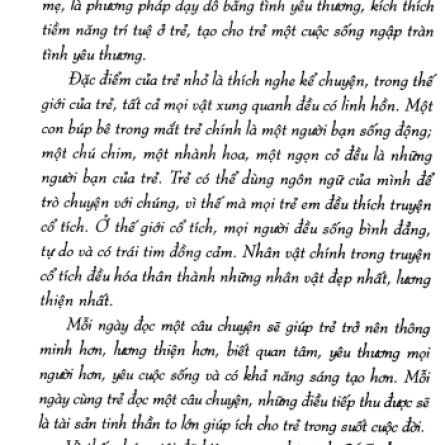 mẹ, là phương pháp dạy dỗ bằng tình yêu thương, kích thích
tiềm năng trí tuệ ở trẻ, tạo cho trẻ một cuộc sống ngập tràn
tình yêu thương.
Đặc điểm của trẻ nhỏ là thích nghe kể chuyện, trong thế
giới của trẻ, tất cả mọi vật xung quanh đều có linh hồn. Một
con búp bê trong mắt trẻ chính là một người bạn sống động;
một chú chim, một nhành hoa, một ngọn cỏ đều là những
người bạn của trẻ. Trẻ có thể dùng ngôn ngữ của mình để
trò chuyện với chúng, vì thế mà mọi trẻ em đều thích truyện
cổ tích. Ở thế giới cổ tích, mọi người đều sống bình đẳng,
tự do và có trái tim đồng cảm. Nhân vật chính trong truyện
cổ tích đều hóa thân thành những nhân vật đẹp nhất, lương
thiện nhất.
Mỗi ngày đọc một câu chuyện sẽ giúp trẻ trở nên thông
minh hơn, lương thiện hơn, biết quan tâm, yêu thương mọi
người hơn, yêu cuộc sống và có khả năng sáng tạo hơn. Mỗi
ngày cùng trẻ đọc một câu chuyện, những điều tiếp thu được sẽ
là tài sản tinh thần to lớn giúp ích cho trẻ trong suốt cuộc đời.